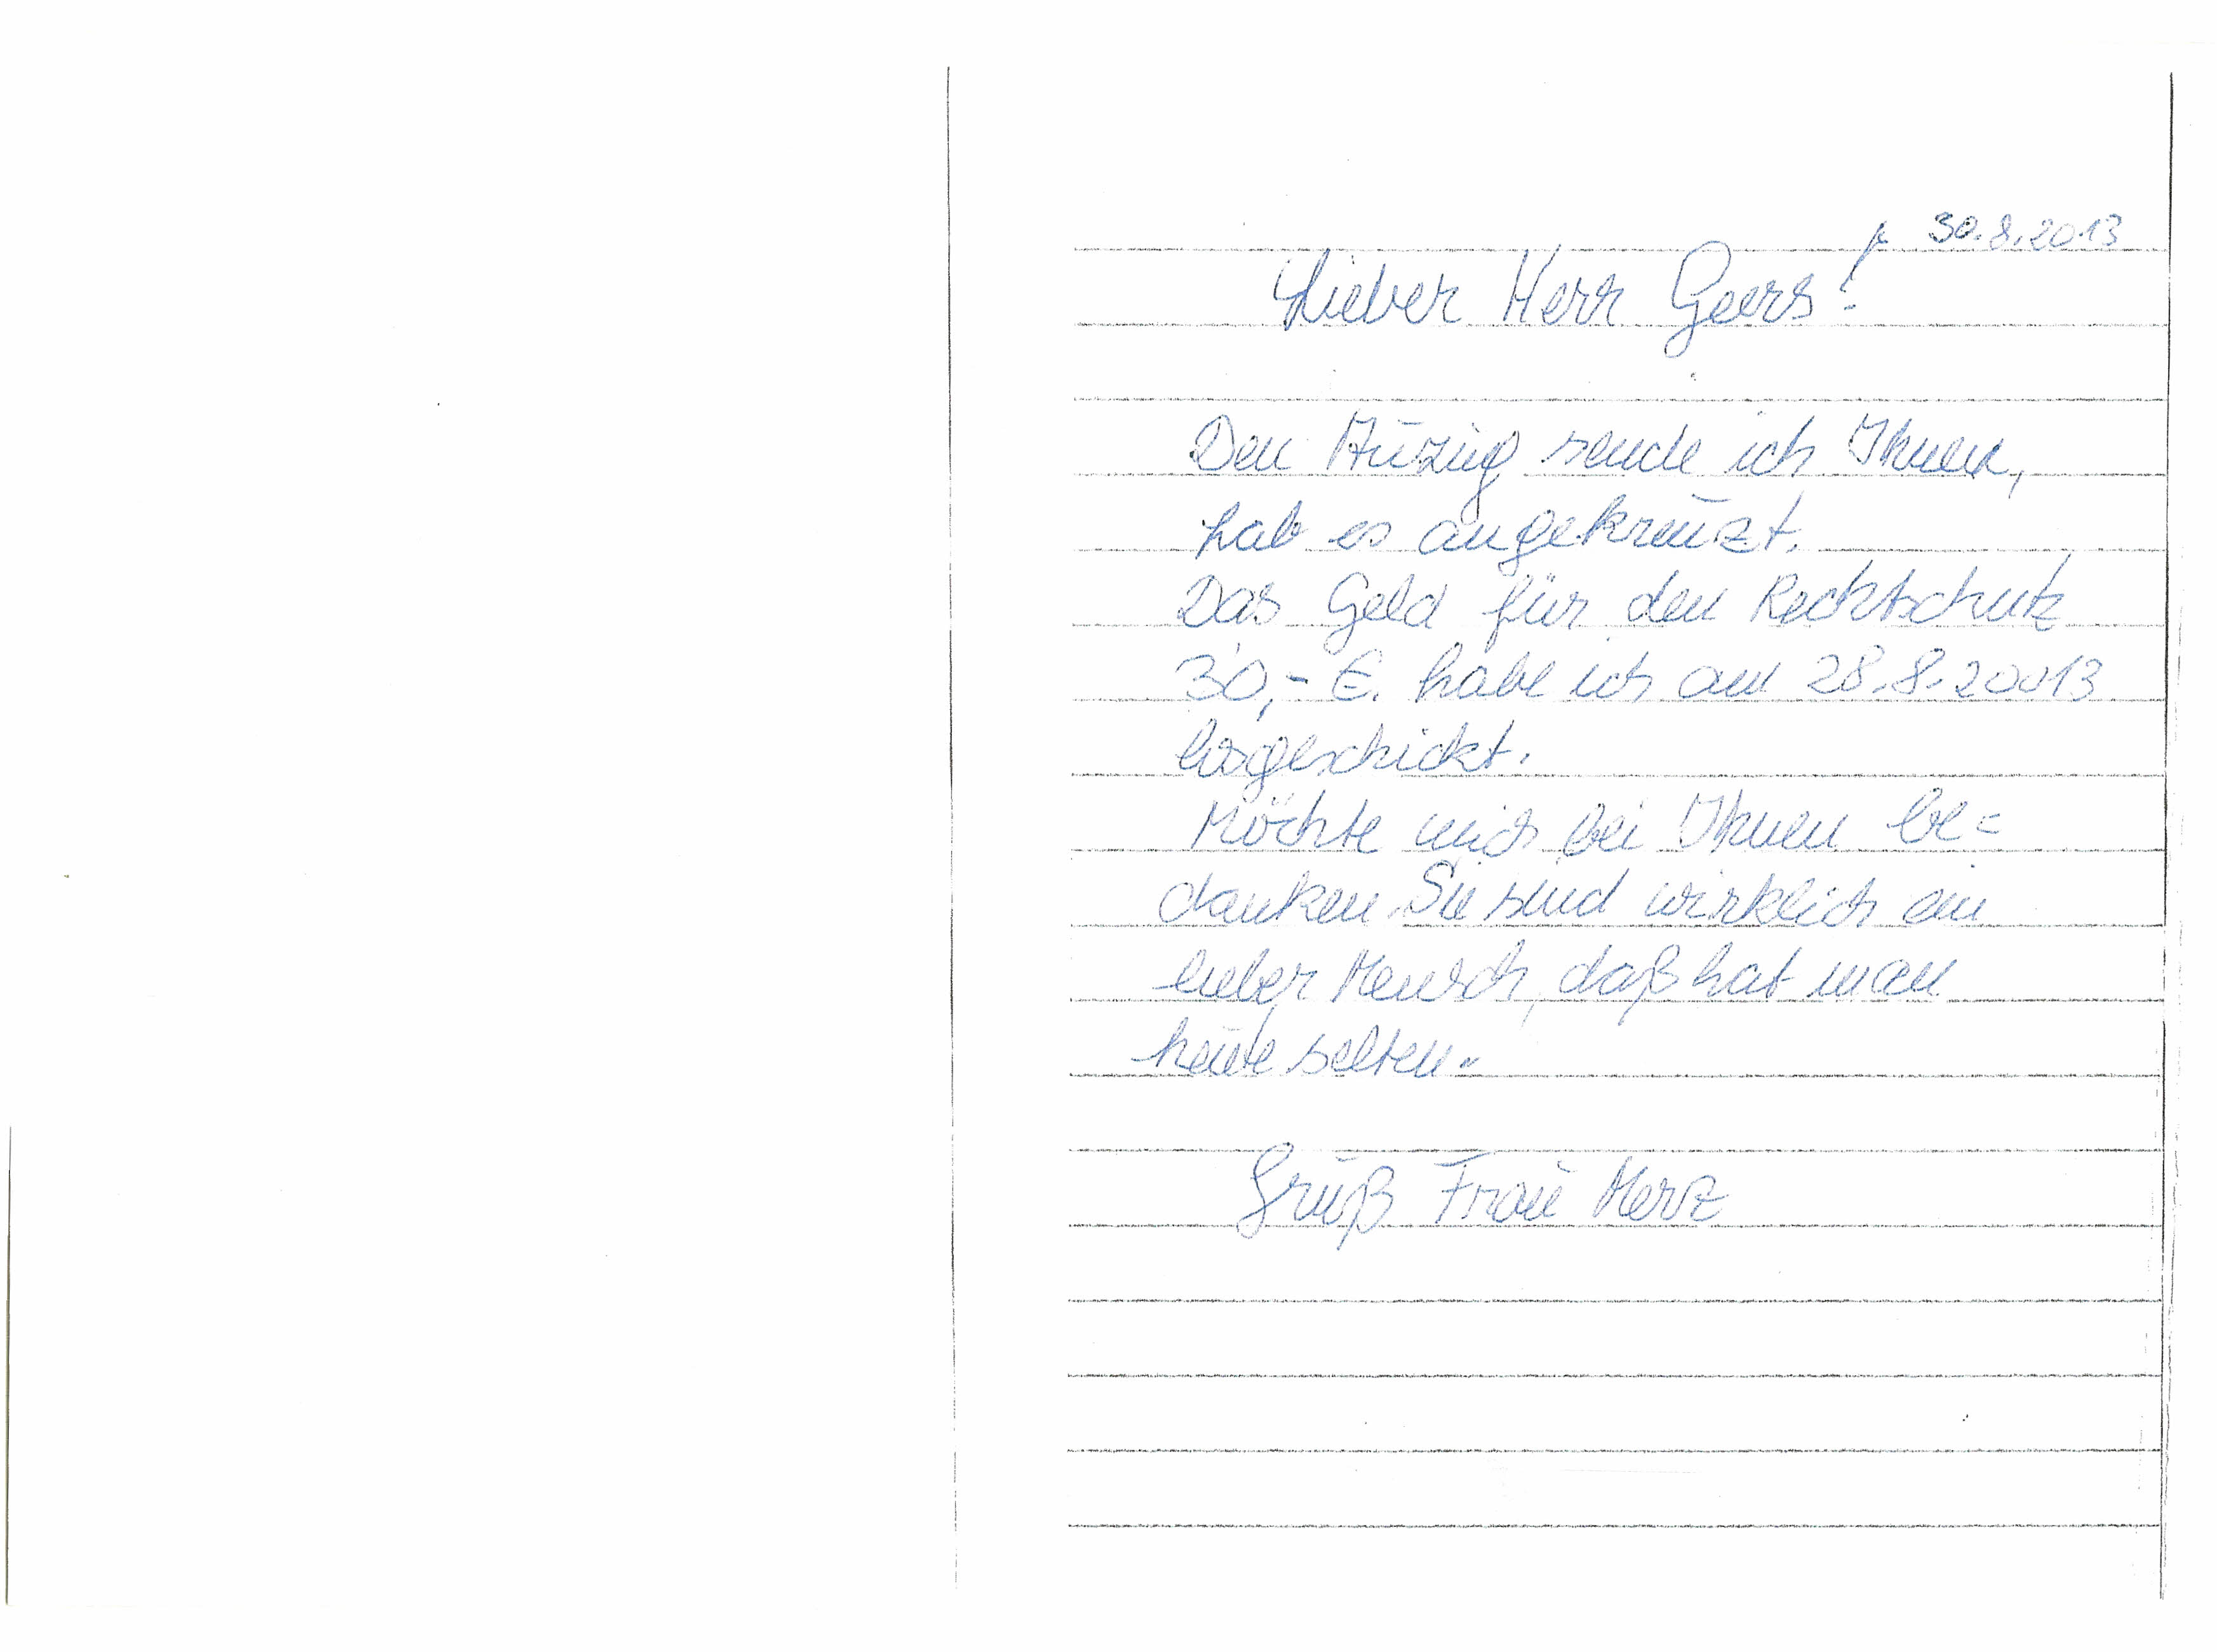 30.8.2013
Lieber Herr Geers!
Den Auszug sende ich Ihnen,
hab es angekreuzt.
Das Geld für den Rechtschutz
30,- €. habe ich am 28.8.20013
losgeschickt.
Möchte mich bei Ihnen be=
danken. Sie sind wirklich ein
lieber Mensch, daß hat man
heute selten.
Gruß Frau Merz